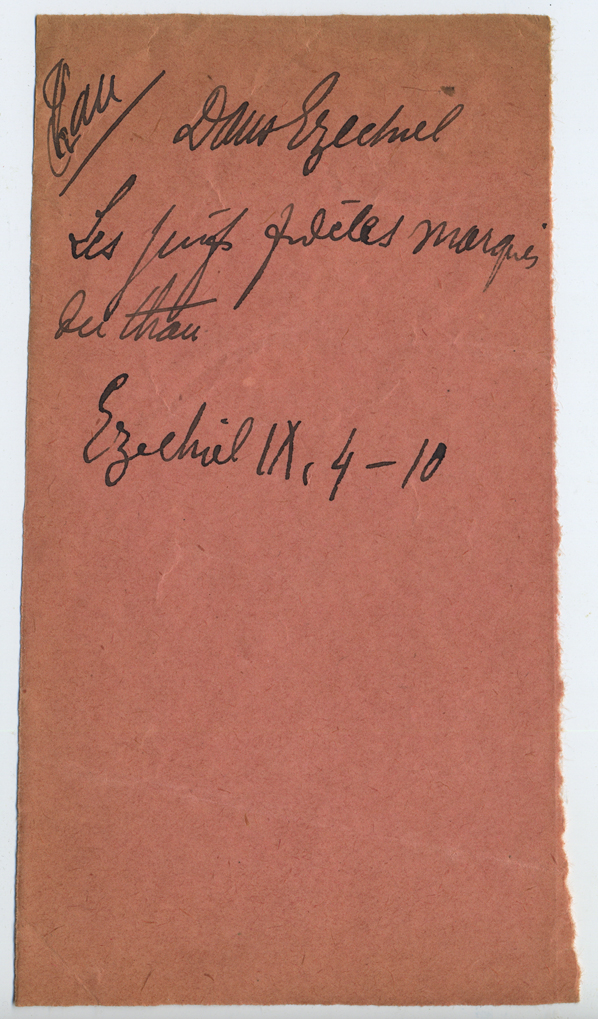 thau / Dans Ezechiel
Les juifs fidèles marqués
du thau
Ezechiel IX, 4 – 10